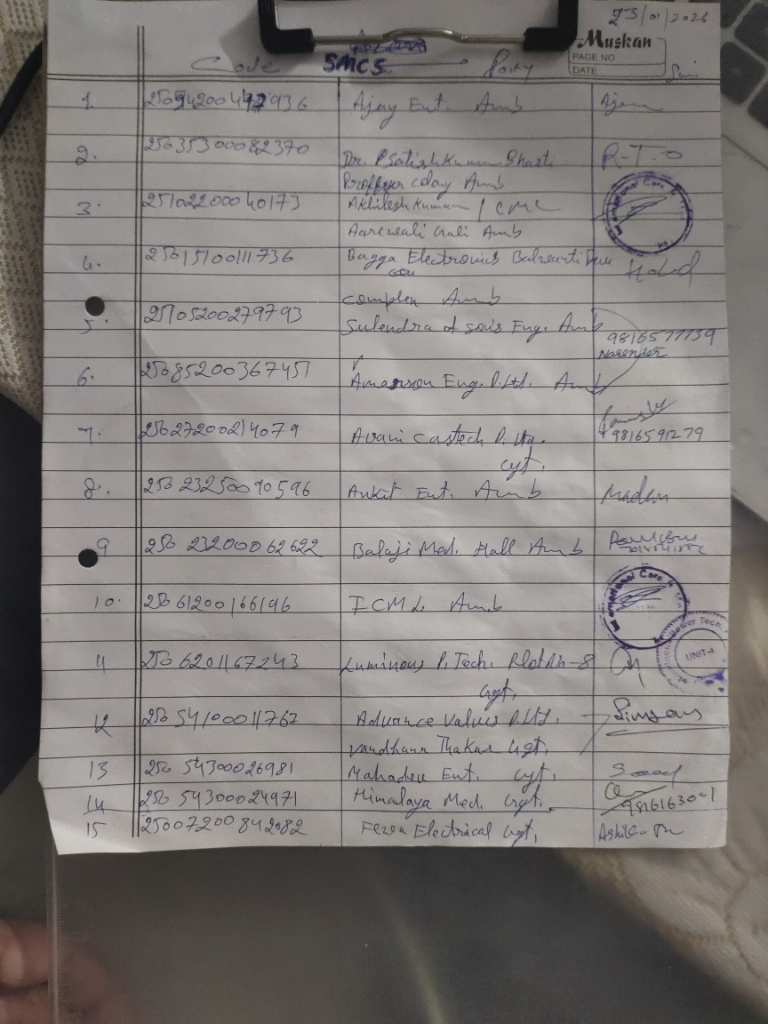 23/01/2026
Muskan
PAGE NO.
DATE
Code SMCS Party
1. 2569420049 7936 Ajay Ent. Amb
2. 25635300082370 Dr. P Satish Kumar Shasti R-T-O
Proffesser colony Amb
3. 25102200040173 Akhilesh Kumar / CMC
Gali Amb
4. 25615100111736 Bagga Electronics
complex Amb
5. 25105200279793 Sulendra & sons Eng. Amb 9816577739
Narender
6. 25685200367451 Eng. P. Ltd. Amb
7. 25627200214079 Avani Castech P. Ltd.
Ugt. 9816591279
8. 25623250090596 Ankit Ent. Amb Madan
9 25623200062622 Balaji Med. Hall Amb
10. 25661200166196 ICML Amb
11 2566201167243 Luminous P. Tech. Plot No-8 UNIT-4
Ugt.
12 25654100011767 Advance Valves P. Ltd. Simran
Vandhana Thakur Ugt.
13 25654300026981 Mahadev Ent. Ugt. Sood
14 25654300024971 Himalaya Med. Ugt.
15 25007200842982 Electrical Ugt.